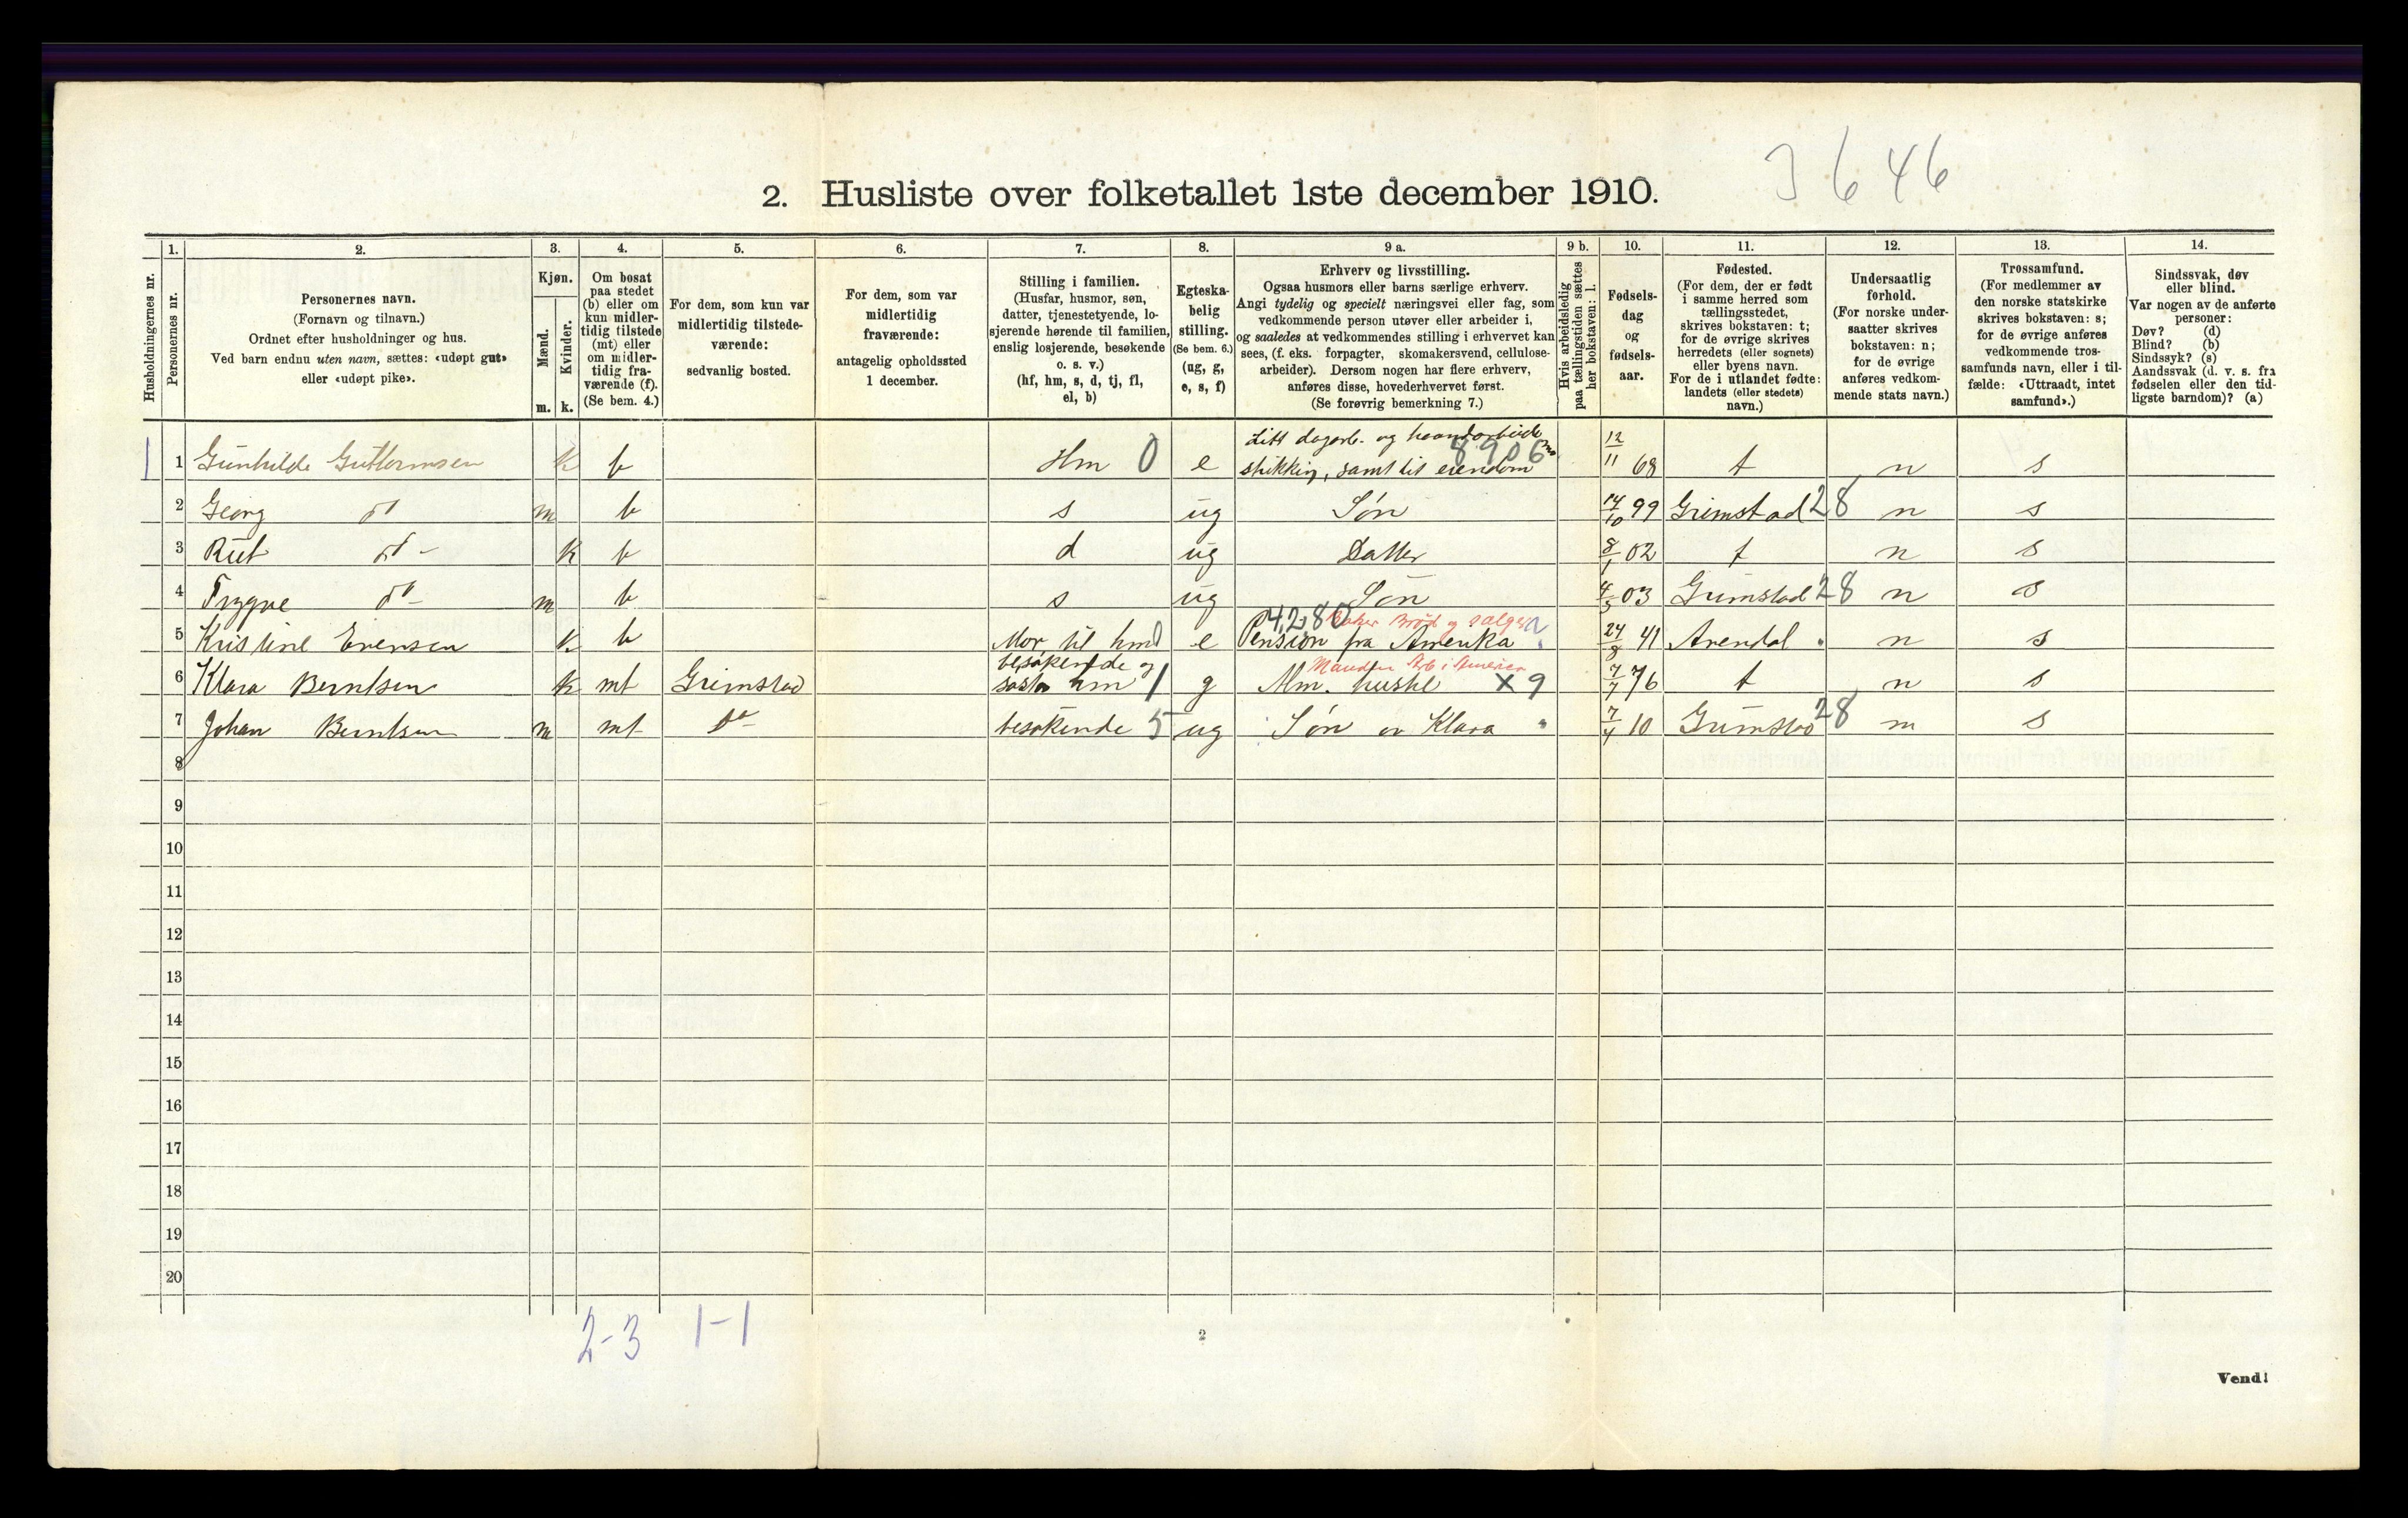 3646
2. Husliste over folketallet 1ste december 1910.
Husholdningernes nr.
1.
Personernes nr.
2.
Personernes navn.
(Fornavn og tilnavn.)
Ordnet efter husholdninger og hus.
Ved barn endnu uten navn, sættes: «udøpt gut»
eller «udøpt pike».
3.
Kjøn.
Mænd.
Kvinder.
m. k.
4.
Om bosat
paa stedet
(b) eller om
kun midler-
tidig tilstede
(mt) eller
om midler-
tidig fra-
værende (f).
(Se bem. 4.)
5.
For dem, som kun var
midlertidig tilstede-
værende:
sedvanlig bosted.
6.
For dem, som var
midlertidig
fraværende:
antagelig opholdssted
1 december.
7.
Stilling i familien.
(Husfar, husmor, søn,
datter, tjenestetyende, lo-
sjerende hørende til familien,
enslig losjerende, besøkende
o. s. v.)
(hf, hm, s, d, tj, fl,
el, b)
8.
Egteska-
belig
stilling.
(Se bem. 6.)
(ug, g,
e, s, f)
9 a.
Erhverv og livsstilling.
Ogsaa husmors eller barns særlige erhverv.
Angi tydelig og specielt næringsvei eller fag, som
vedkommende person utøver eller arbeider i,
og saaledes at vedkommendes stilling i erhvervet kan
sees, (f. eks. forpagter, skomakersvend, cellulose-
arbeider). Dersom nogen har flere erhverv,
anføres disse, hovederhvervet først.
(Se forøvrig bemerkning 7.)
9 b.
Hvis arbeidsledig
paa tællingstiden sættes
her bokstaven: l.
10.
Fødsels-
dag
og
fødsels-
aar.
11.
Fødested.
(For dem, der er født
i samme herred som
tællingsstedet,
skrives bokstaven: t;
for de øvrige skrives
herredets (eller sognets)
eller byens navn.
For de i utlandet fødte:
landets (eller stedets)
navn.)
12.
Undersaatlig
forhold.
(For norske under-
saatter skrives
bokstaven: n;
for de øvrige
anføres vedkom-
mende stats navn.)
13.
Trossamfund.
(For medlemmer av
den norske statskirke
skrives bokstaven: s;
for de øvrige anføres
vedkommende tros-
samfunds navn, eller i til-
fælde: «Uttraadt, intet
samfund».)
14.
Sindssvak, døv
eller blind.
Var nogen av de anførte
personer:
Døv? (d)
Blind? (b)
Sindssyk? (s)
Aandssvak (d. v. s. fra
fødselen eller den tid-
ligste barndom)? (a)
Litt dagarb. og haandarbeide
8906
1 1 Gunhilde Guttormsen k b Hm 0 e strikking, samt lit eiendom 12/11 68 t n s
2 Georg do m b s ug Søn 14/10 99 Grimstad 28 n s
3 Rut do - k b d ug Datter 8/1 02 t n s
4 Trygve do - m b s ug Søn 4/5 03 Grimstad 28 n s
4280 Baker Brød og salger
5 Kristine Evensen k b Mor til hm 0 e Pension fra Amerika 24/8 41 Arendal n s
besøkende og Manden Arb i America
6 Klara Berntsen k mt Grimstad søster hm 1 g Mm. hustel x 9 7/7 76 t n s
7 Johan Berntsen m mt do - besøkende 5 ug Søn av Klara " 7/4 10 Grimstad 28 n s
8
9
10
11
12
13
14
15
16
17
18
19
20
2-3 1-1
2
Vend!